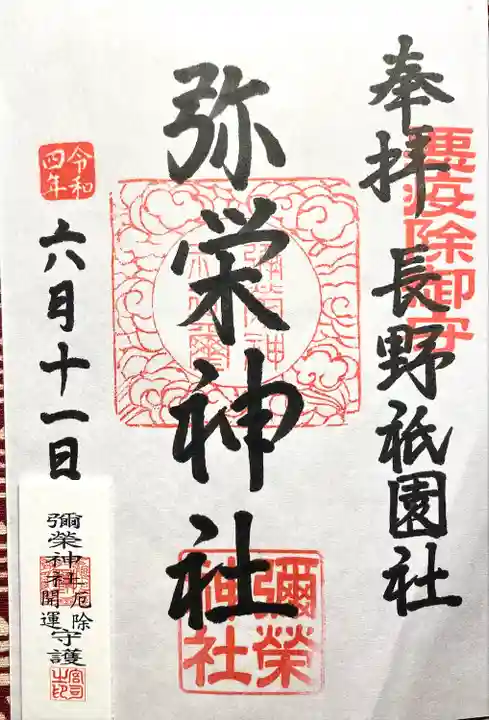 奉拝
悪疫除御守
長野祇園社
弥栄神社
彌榮神社
令和四年
六月十一日
彌榮神社
厄除
開運
守護
宮司之印